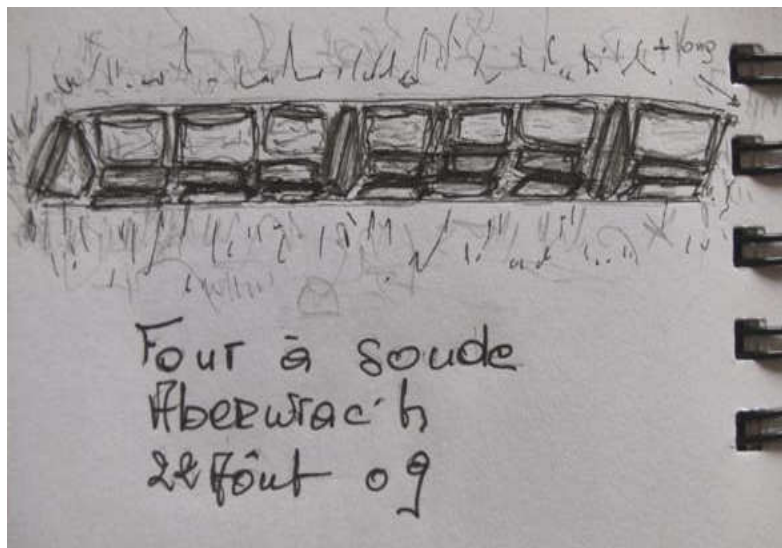 + long
Four à soude
Aberwrac'h
22 Août 09